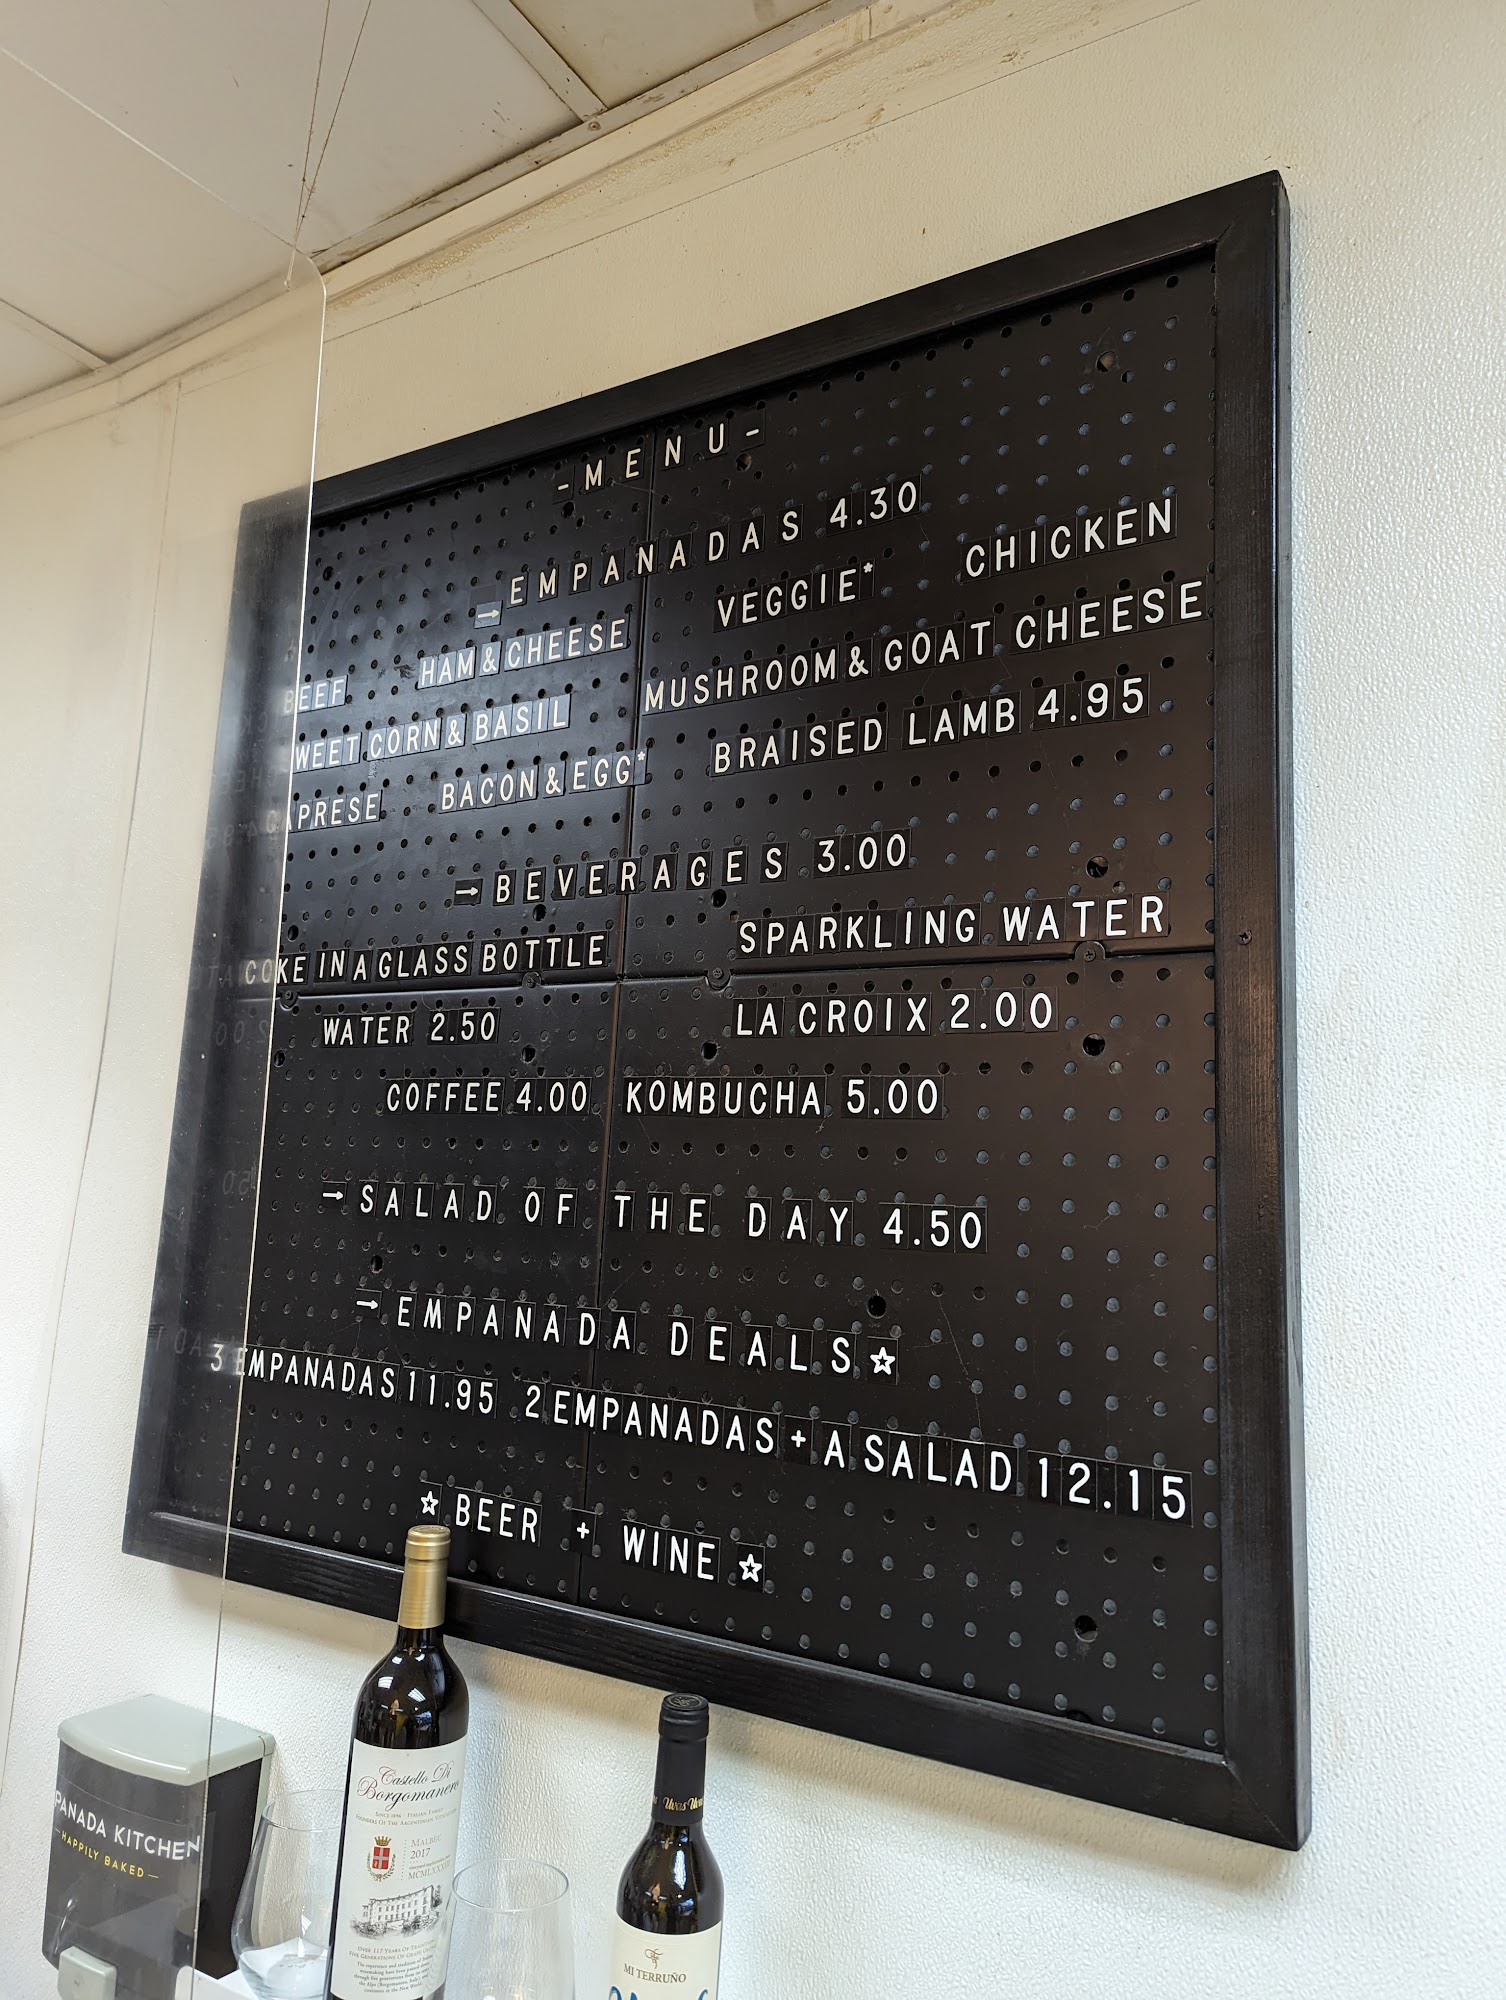 -MENU-
→EMPANADAS 4.30
BEEF HAM & CHEESE VEGGIE* CHICKEN
WEET CORN & BASIL MUSHROOM & GOAT CHEESE
CAPRESE BACON & EGG* BRAISED LAMB 4.95
→BEVERAGES 3.00
COKE IN A GLASS BOTTLE SPARKLING WATER
WATER 2.50 LA CROIX 2.00
COFFEE 4.00 KOMBUCHA 5.00
→SALAD OF THE DAY 4.50
→EMPANADA DEALS☆
3 EMPANADAS 11.95 2 EMPANADAS + A SALAD 12.15
☆ BEER + WINE ☆
PANADA KITCHEN
—HAPPILY BAKED—
Castello Di
Borgomanero
SINCE 1896 - ITALIAN FAMILY
FOUNDERS OF THE ARGENTINIAN
MALBEC
2017
MCMLXXXVI
OVER 117 YEARS OF TRADITION
FIVE GENERATIONS OF GRAPE GROWERS
MI TERRUÑO